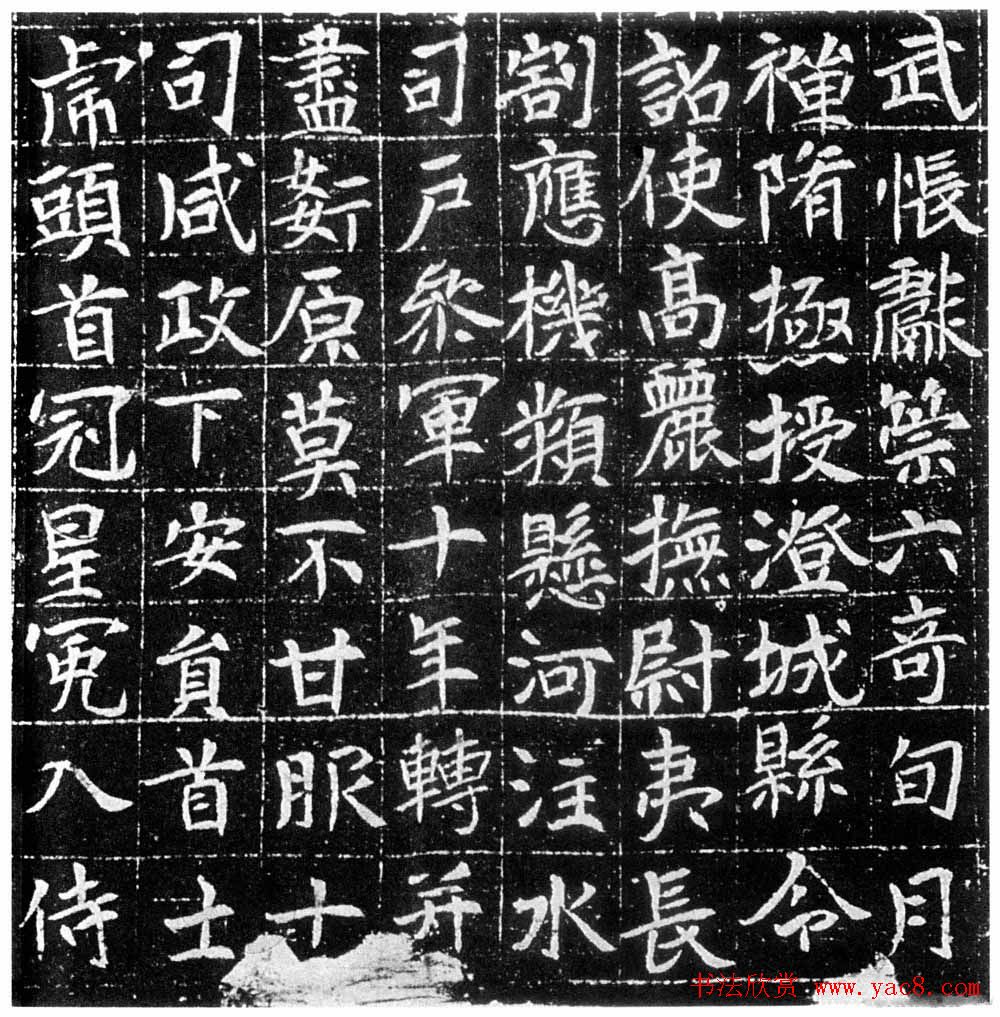 武帳獻筞六奇旬月
禪隋極授澄城縣令
詔使高麗撫尉夷長
割應機類懸河注水
司戶叅軍十年轉并
盡姧原莫不甘服十
司咸政下安員首士
虎頭首冠星冕入侍
书法欣赏 www.yac8.com